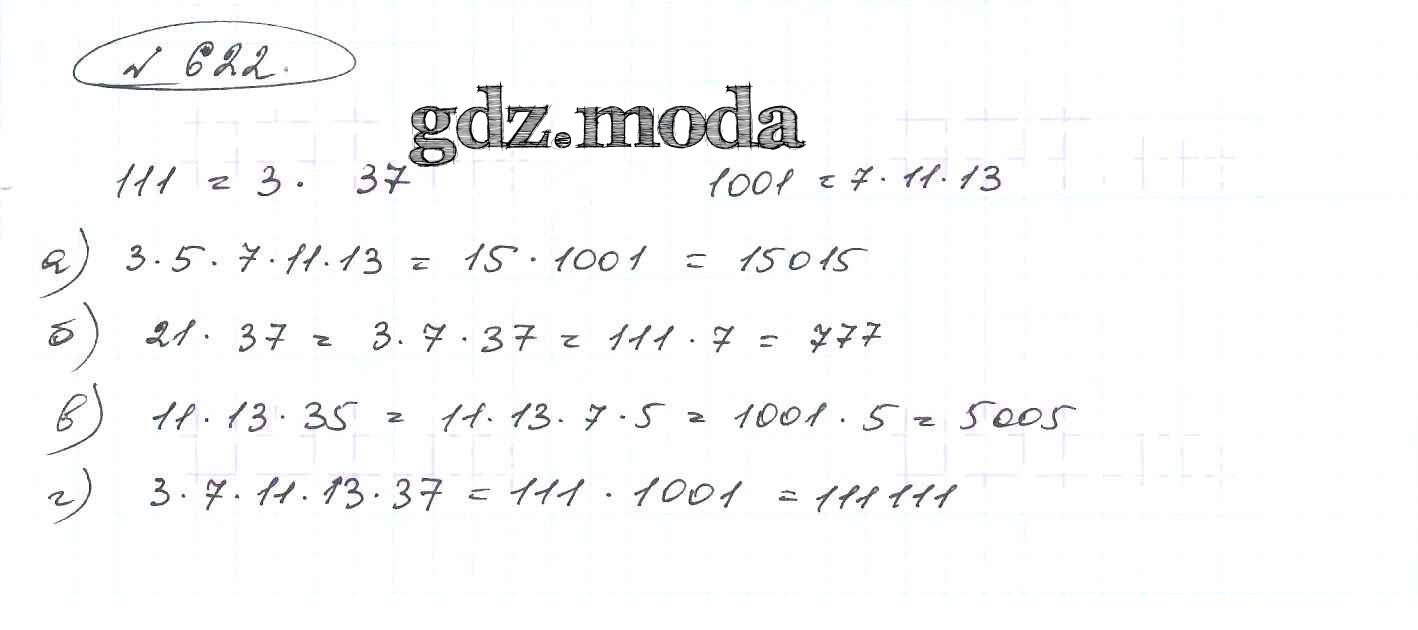 № 622.
gdz.moda
111 = 3 · 37 1001 = 7 · 11 · 13
а) 3 · 5 · 7 · 11 · 13 = 15 · 1001 = 15015
б) 21 · 37 = 3 · 7 · 37 = 111 · 7 = 777
в) 11 · 13 · 35 = 11 · 13 · 7 · 5 = 1001 · 5 = 5005
г) 3 · 7 · 11 · 13 · 37 = 111 · 1001 = 111111